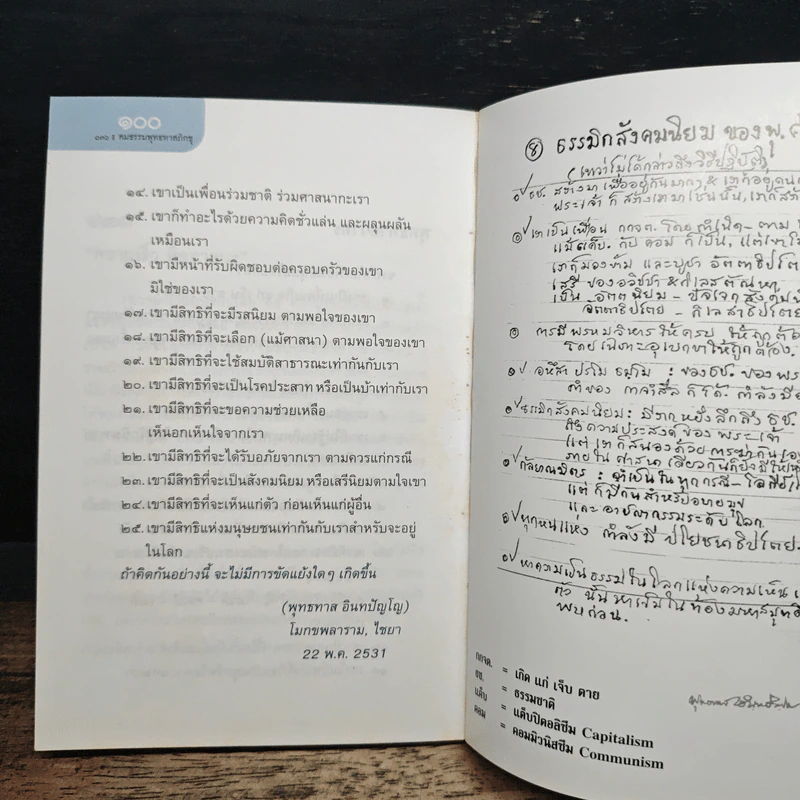 ๑๐๐
๓๙๖ : คมธรรมพุทธทาสภิกขุ
๑๔. เขาเป็นเพื่อนร่วมชาติ ร่วมศาสนากะเรา
๑๕. เขาก็ทำอะไรด้วยความคิดชั่วแล่น และผลุนผลัน
เหมือนเรา
๑๖. เขามีหน้าที่รับผิดชอบต่อครอบครัวของเขา
มิใช่ของเรา
๑๗. เขามีสิทธิที่จะมีรสนิยม ตามพอใจของเขา
๑๘. เขามีสิทธิที่จะเลือก (แม้ศาสนา) ตามพอใจของเขา
๑๙. เขามีสิทธิที่จะใช้สมบัติสาธารณะเท่ากันกับเรา
๒๐. เขามีสิทธิที่จะเป็นโรคประสาท หรือเป็นบ้าเท่ากับเรา
๒๑. เขามีสิทธิที่จะขอความช่วยเหลือ
เห็นอกเห็นใจจากเรา
๒๒. เขามีสิทธิที่จะได้รับอภัยจากเรา ตามควรแก่กรณี
๒๓. เขามีสิทธิที่จะเป็นสังคมนิยม หรือเสรีนิยมตามใจเขา
๒๔. เขามีสิทธิที่จะเห็นแก่ตัว ก่อนเห็นแก่ผู้อื่น
๒๕. เขามีสิทธิแห่งมนุษยชนเท่ากันกับเราสำหรับจะอยู่
ในโลก
ถ้าคิดกันอย่างนี้ จะไม่มีการขัดแย้งใดๆ เกิดขึ้น
(พุทธทาส อินทปัญโญ)
โมกขพลาราม, ไชยา
22 พ.ค. 2531
๘ ธรรมิกสังคมนิยม ของ พุ.
ธช. สร้างมา เพื่ออยู่กันมากๆ &
พระเจ้า ก็สร้างเขามาเช่นนั้น,
เขาเป็นเพื่อน กกจต. โดยกำเนิด- ตาม
แม้แค็บ. กับ คอม ก็เป็น,
เขาก็มองข้าม และบูชา อัตตาธิปไตย
เสรี ของอวิชชา & กิเลสตัณหา
เป็น อัตตนิยม -
อัตตาธิปไตย - กิเลสาธิปไตย
การมีพรหมวิหารให้ครบ ให้ถูกต้อง
โดยเฉพาะอุเบกขาให้ถูกต้อง.
อหึสา ปรโม ธมฺโม : ของ ธช. ของ พระ
ธรรมิกสังคมนิยม : มีรากหยั่งลึกถึง ธช.
ความประสงค์ของ พระเจ้า
แต่เขาก็สนองด้วยการฆ่ากัน
ภายใน ศาสนาเดียวกันก็ยังมี
กัลยาณมิตร : จำเป็นในทุกกรณี -
แต่ ก็มีกันสำหรับอบายมุข
และ อาชญากรรมระดับโลก
ทุกหนแห่ง กำลังมี ปโยชนาธิปไตย
หาความเป็นธรรมในโลกแห่งความเห็น
ตัว นั้น หาเข็มในท้องมหาสมุทร
พบก่อน.
กกจต. = เกิด แก่ เจ็บ ตาย
ธช. = ธรรมชาติ
แค็บ = แค็บปิตอลิซึม Capitalism
คอม = คอมมิวนิสซึม Communism